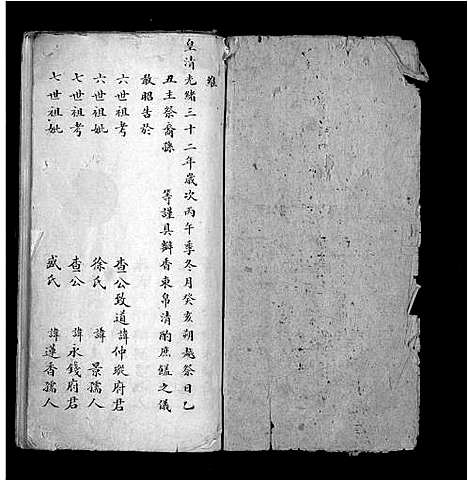 維
皇清光緒三十二年歲次丙午季冬月癸亥朔越祭日乙
丑主祭裔孫 等謹具辦香束帛清酌庶饈之儀
敢昭告於
六世祖考 查公致道 諱仲璇府君
六世祖妣 徐氏 諱 景孺人
七世祖考 查公 諱永錢府君
七世祖妣 盛氏 諱蓮香孺人